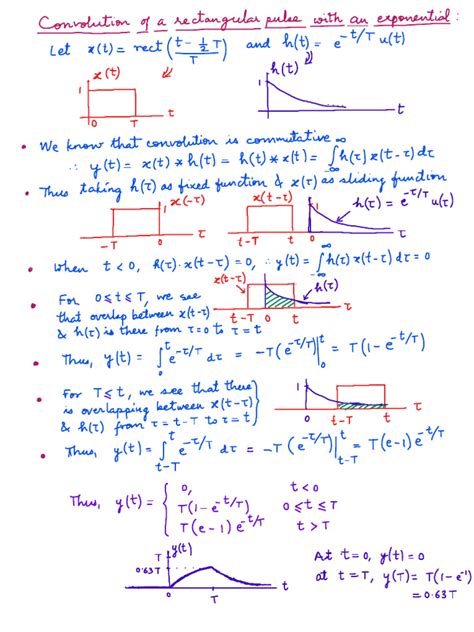 Convolution of a rectangular pulse with an exponential:
Let x(t) = rect((t - ½T)/T) and h(t) = e^{-t/T} u(t)
x(t)
1
0 T t
h(t)
1
t
• We know that convolution is commutative
∴ y(t) = x(t) * h(t) = h(t) * x(t) = ∫_{-∞}^{∞} h(τ) x(t-τ) dτ
• Thus taking h(τ) as fixed function & x(τ) as sliding function
1 x(-τ)
-T 0 τ
x(t-τ)
t-T t
1
0 τ
h(τ) = e^{-τ/T} u(τ)
• When t < 0, h(τ)·x(t-τ) = 0, ∴ y(t) = ∫_{-∞}^{∞} h(τ) x(t-τ) dτ = 0
• For 0 ≤ t ≤ T, we see
that overlap between x(t-τ)
& h(τ) is there from τ=0 to τ=t
x(t-τ)
h(τ)
t-T 0 t τ
• Thus, y(t) = ∫_{0}^{t} e^{-τ/T} dτ = -T (e^{-τ/T})|_{0}^{t} = T(1-e^{-t/T})
• For T ≤ t, we see that there
is overlapping between x(t-τ)
& h(τ) from τ = t-T to τ = t
1
0 t-T t τ
• Thus, y(t) = ∫_{t-T}^{t} e^{-τ/T} dτ = -T (e^{-τ/T})|_{t-T}^{t} = T(e-1) e^{-t/T}
Thus, y(t) = { 0, t < 0
T(1-e^{-t/T}) 0 ≤ t ≤ T
T(e-1) e^{-t/T} t > T
y(t)
T
0.63T
0 T t
At t=0, y(t) = 0
at t=T, y(T) = T(1-e^{-1})
= 0.63T